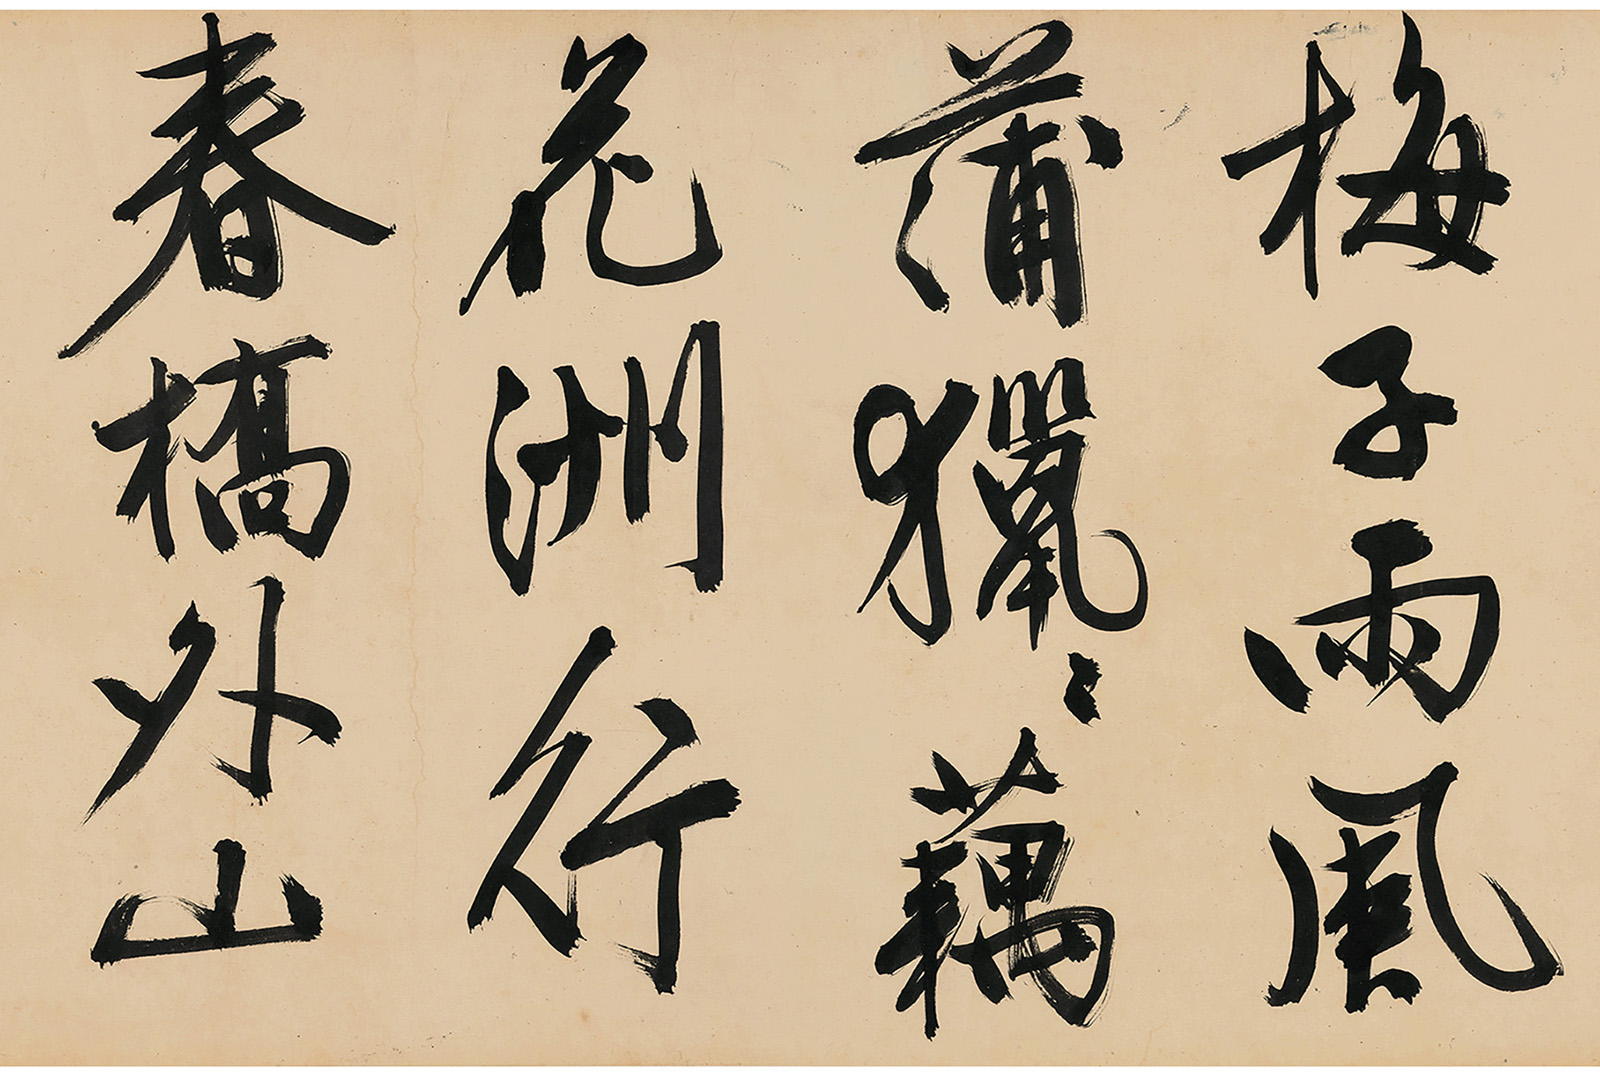 梅子雨風
蒲獵〻藕
花洲行
春橋外山